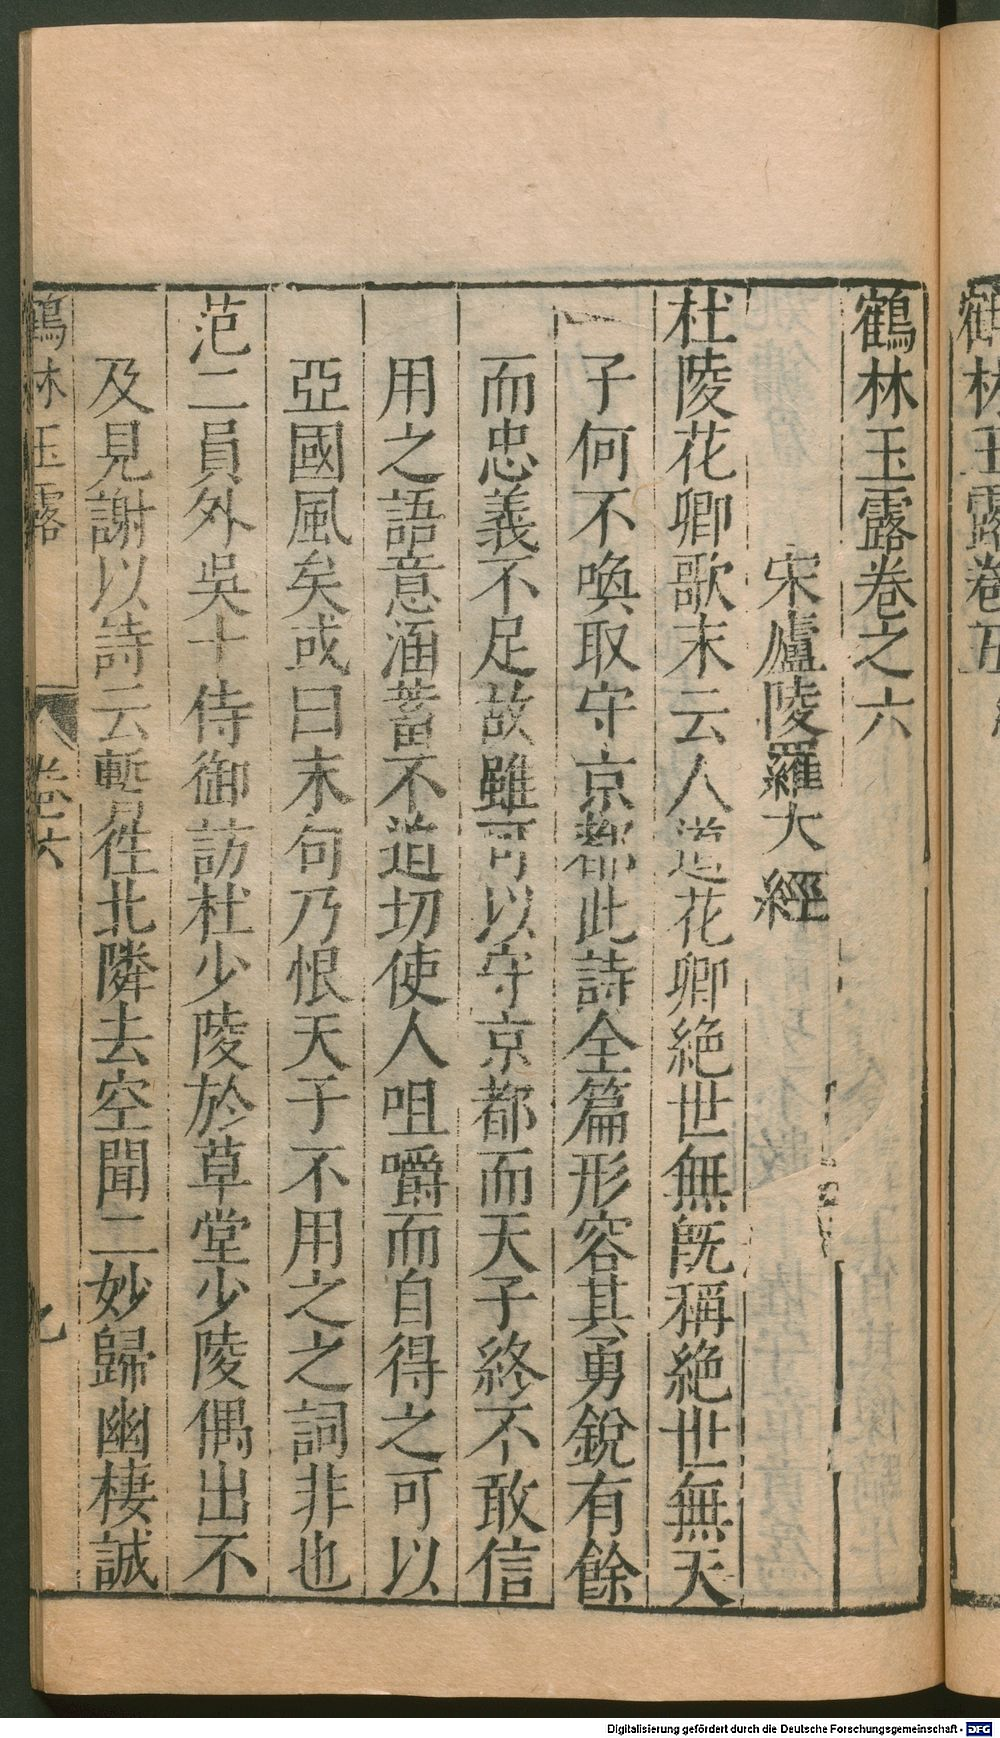 鶴林玉露卷之六
宋廬陵羅大經
杜陵花卿歌末云人道花卿絶世無旣稱絶世無天
子何不喚取守京都此詩全篇形容其勇銳有餘
而忠義不足故雖可以守京都而天子終不敢信
用之語意涵蓄不迫切使人咀嚼而自得之可以
亞國風矣或曰末句乃恨天子不用之之詞非也
范二員外吳十侍御訪杜少陵於草堂少陵偶出不
及見謝以詩云暫徃北隣去空聞二妙歸幽棲誠
鶴林玉露
卷六
鶴林玉露卷五
Digitalisierung gefördert durch die Deutsche Forschungsgemeinschaft - DFG